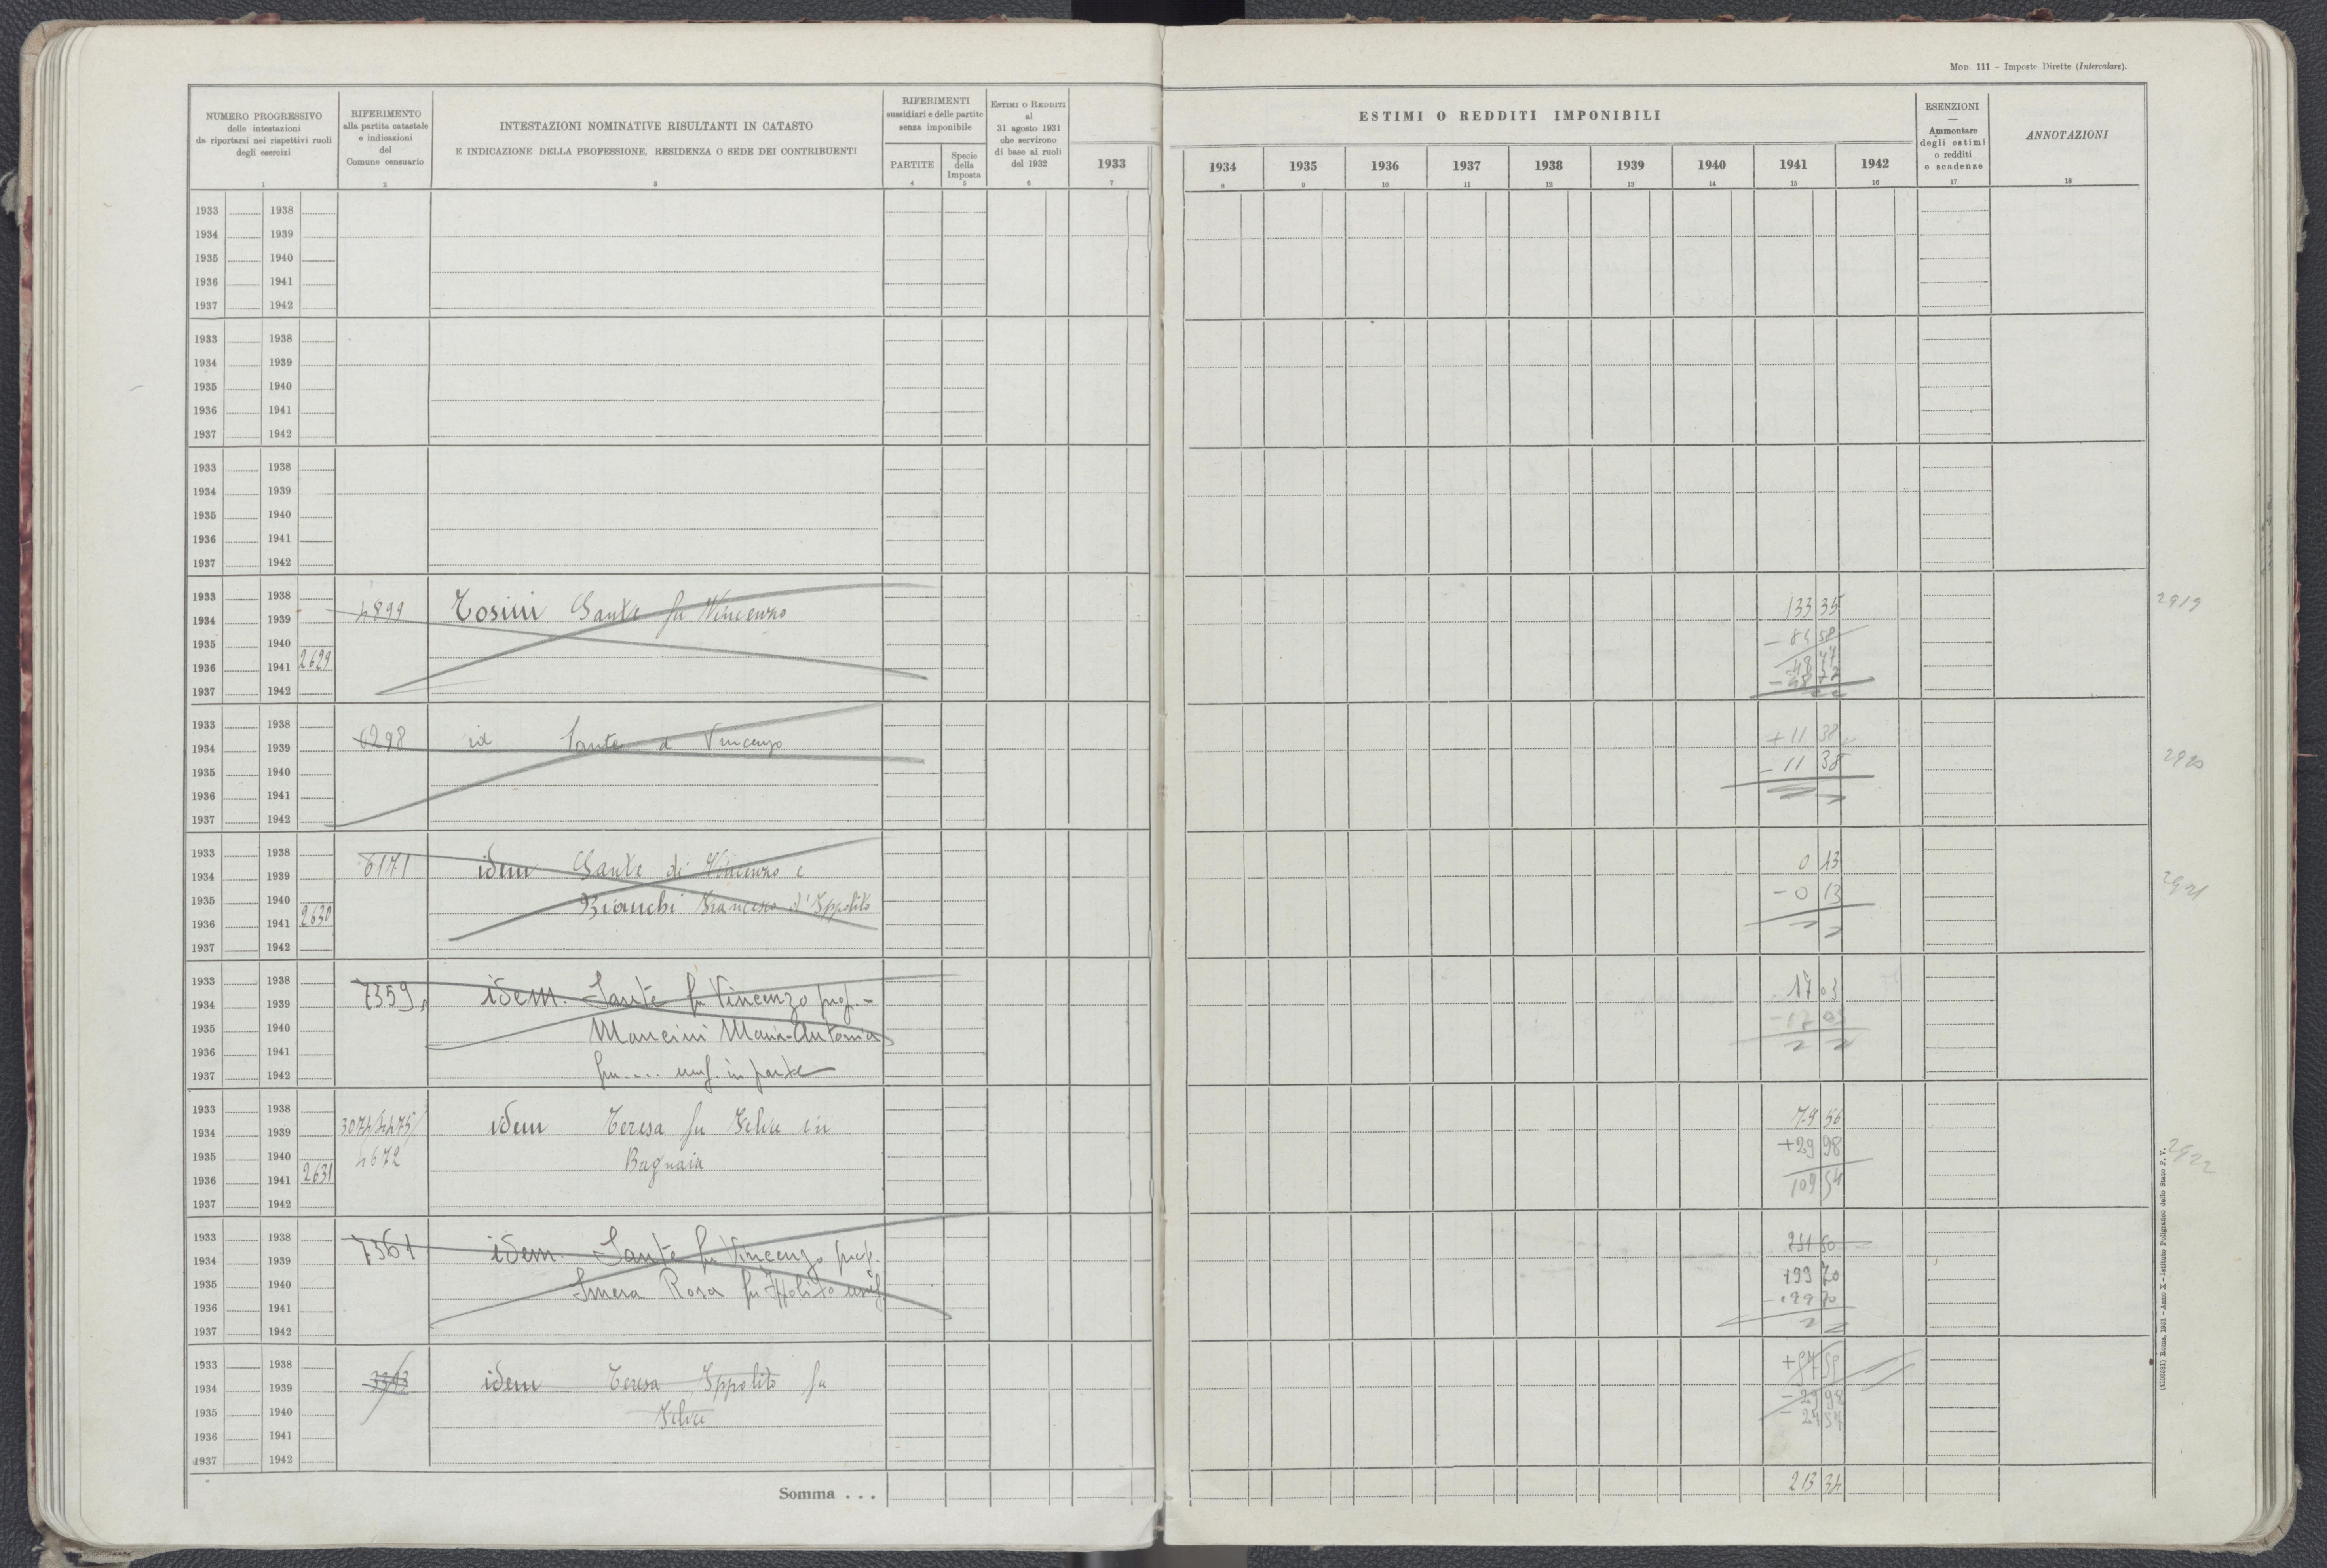 Mod. 111 – Imposte Dirette (Intercalare).
NUMERO PROGRESSIVO
delle intestazioni
da riportarsi nei rispettivi ruoli
degli esercizi
1
RIFERIMENTO
alla partita catastale
e indicazioni
del
Comune censuario
2
INTESTAZIONI NOMINATIVE RISULTANTI IN CATASTO
E INDICAZIONE DELLA PROFESSIONE, RESIDENZA O SEDE DEI CONTRIBUENTI
3
RIFERIMENTI
sussidiari e delle partite
senza imponibile
PARTITE
4
Specie
della
Imposta
5
Estimi o Redditi
al
31 agosto 1931
che servirono
di base ai ruoli
del 1932
6
1933
7
ESTIMI O REDDITI IMPONIBILI
1934 1935 1936 1937 1938 1939 1940 1941 1942
8 9 10 11 12 13 14 15 16
ESENZIONI
—
Ammontare
degli estimi
o redditi
e scadenze
17
ANNOTAZIONI
18
1933 1938
1934 1939
1935 1940
1936 1941
1937 1942
1933 1938
1934 1939
1935 1940
1936 1941
1937 1942
1933 1938
1934 1939
1935 1940
1936 1941
1937 1942
1933 1938
1934 1939 4899 Tosini Sante fu Vincenzo 133 35 2919
1935 1940
1936 1941 2629 48 77
1937 1942 - 48 77
1933 1938
1934 1939 6298 id Sante d Vincenzo + 11 38 2920
1935 1940 - 11 38
1936 1941
1937 1942
1933 1938
1934 1939 6171 idem Sante di Vincenzo e 0 13 2921
1935 1940 Bianchi Francesco d'Ippolito - 0 13
1936 1941 2630
1937 1942
1933 1938
1934 1939 7359 idem. Sante fu Vincenzo prop. - 17 03
1935 1940 Mancini Maria-Antonia - 17 03
1936 1941
1937 1942 fu.... usuf. in parte
1933 1938
1934 1939 3074/4475/ idem Teresa fu Felice in 79 56
1935 1940 4672 Bagnaia +29 98 2922
1936 1941 2631 109 54
1937 1942
1933 1938
1934 1939 7361 idem. Sante fu Vincenzo prop.
1935 1940 Rosa fu Ippolito usuf. 199 70
1936 1941 - 199 70
1937 1942
1933 1938 + 57 52
1934 1939 idem Teresa Ippolito fu - 29 98
1935 1940 Felice - 27 54
1936 1941
1937 1942
Somma . . . 213 34
Roma, 1931 – Anno X – Istituto Poligrafico dello Stato P. V.